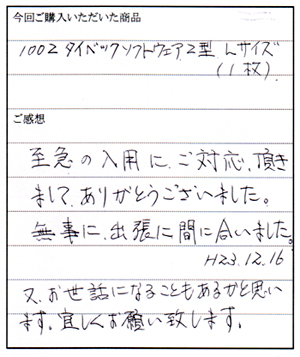 今回ご購入いただいた商品
1002 タイベックソフトウェア2型 Lサイズ
(1枚)
ご感想
至急の入用に、ご対応、頂き
まして、ありがとうございました。
無事に、出張に間に合いました。
H23.12.16
又、お世話になることもあるかと思い
ます、宜しくお願い致します。